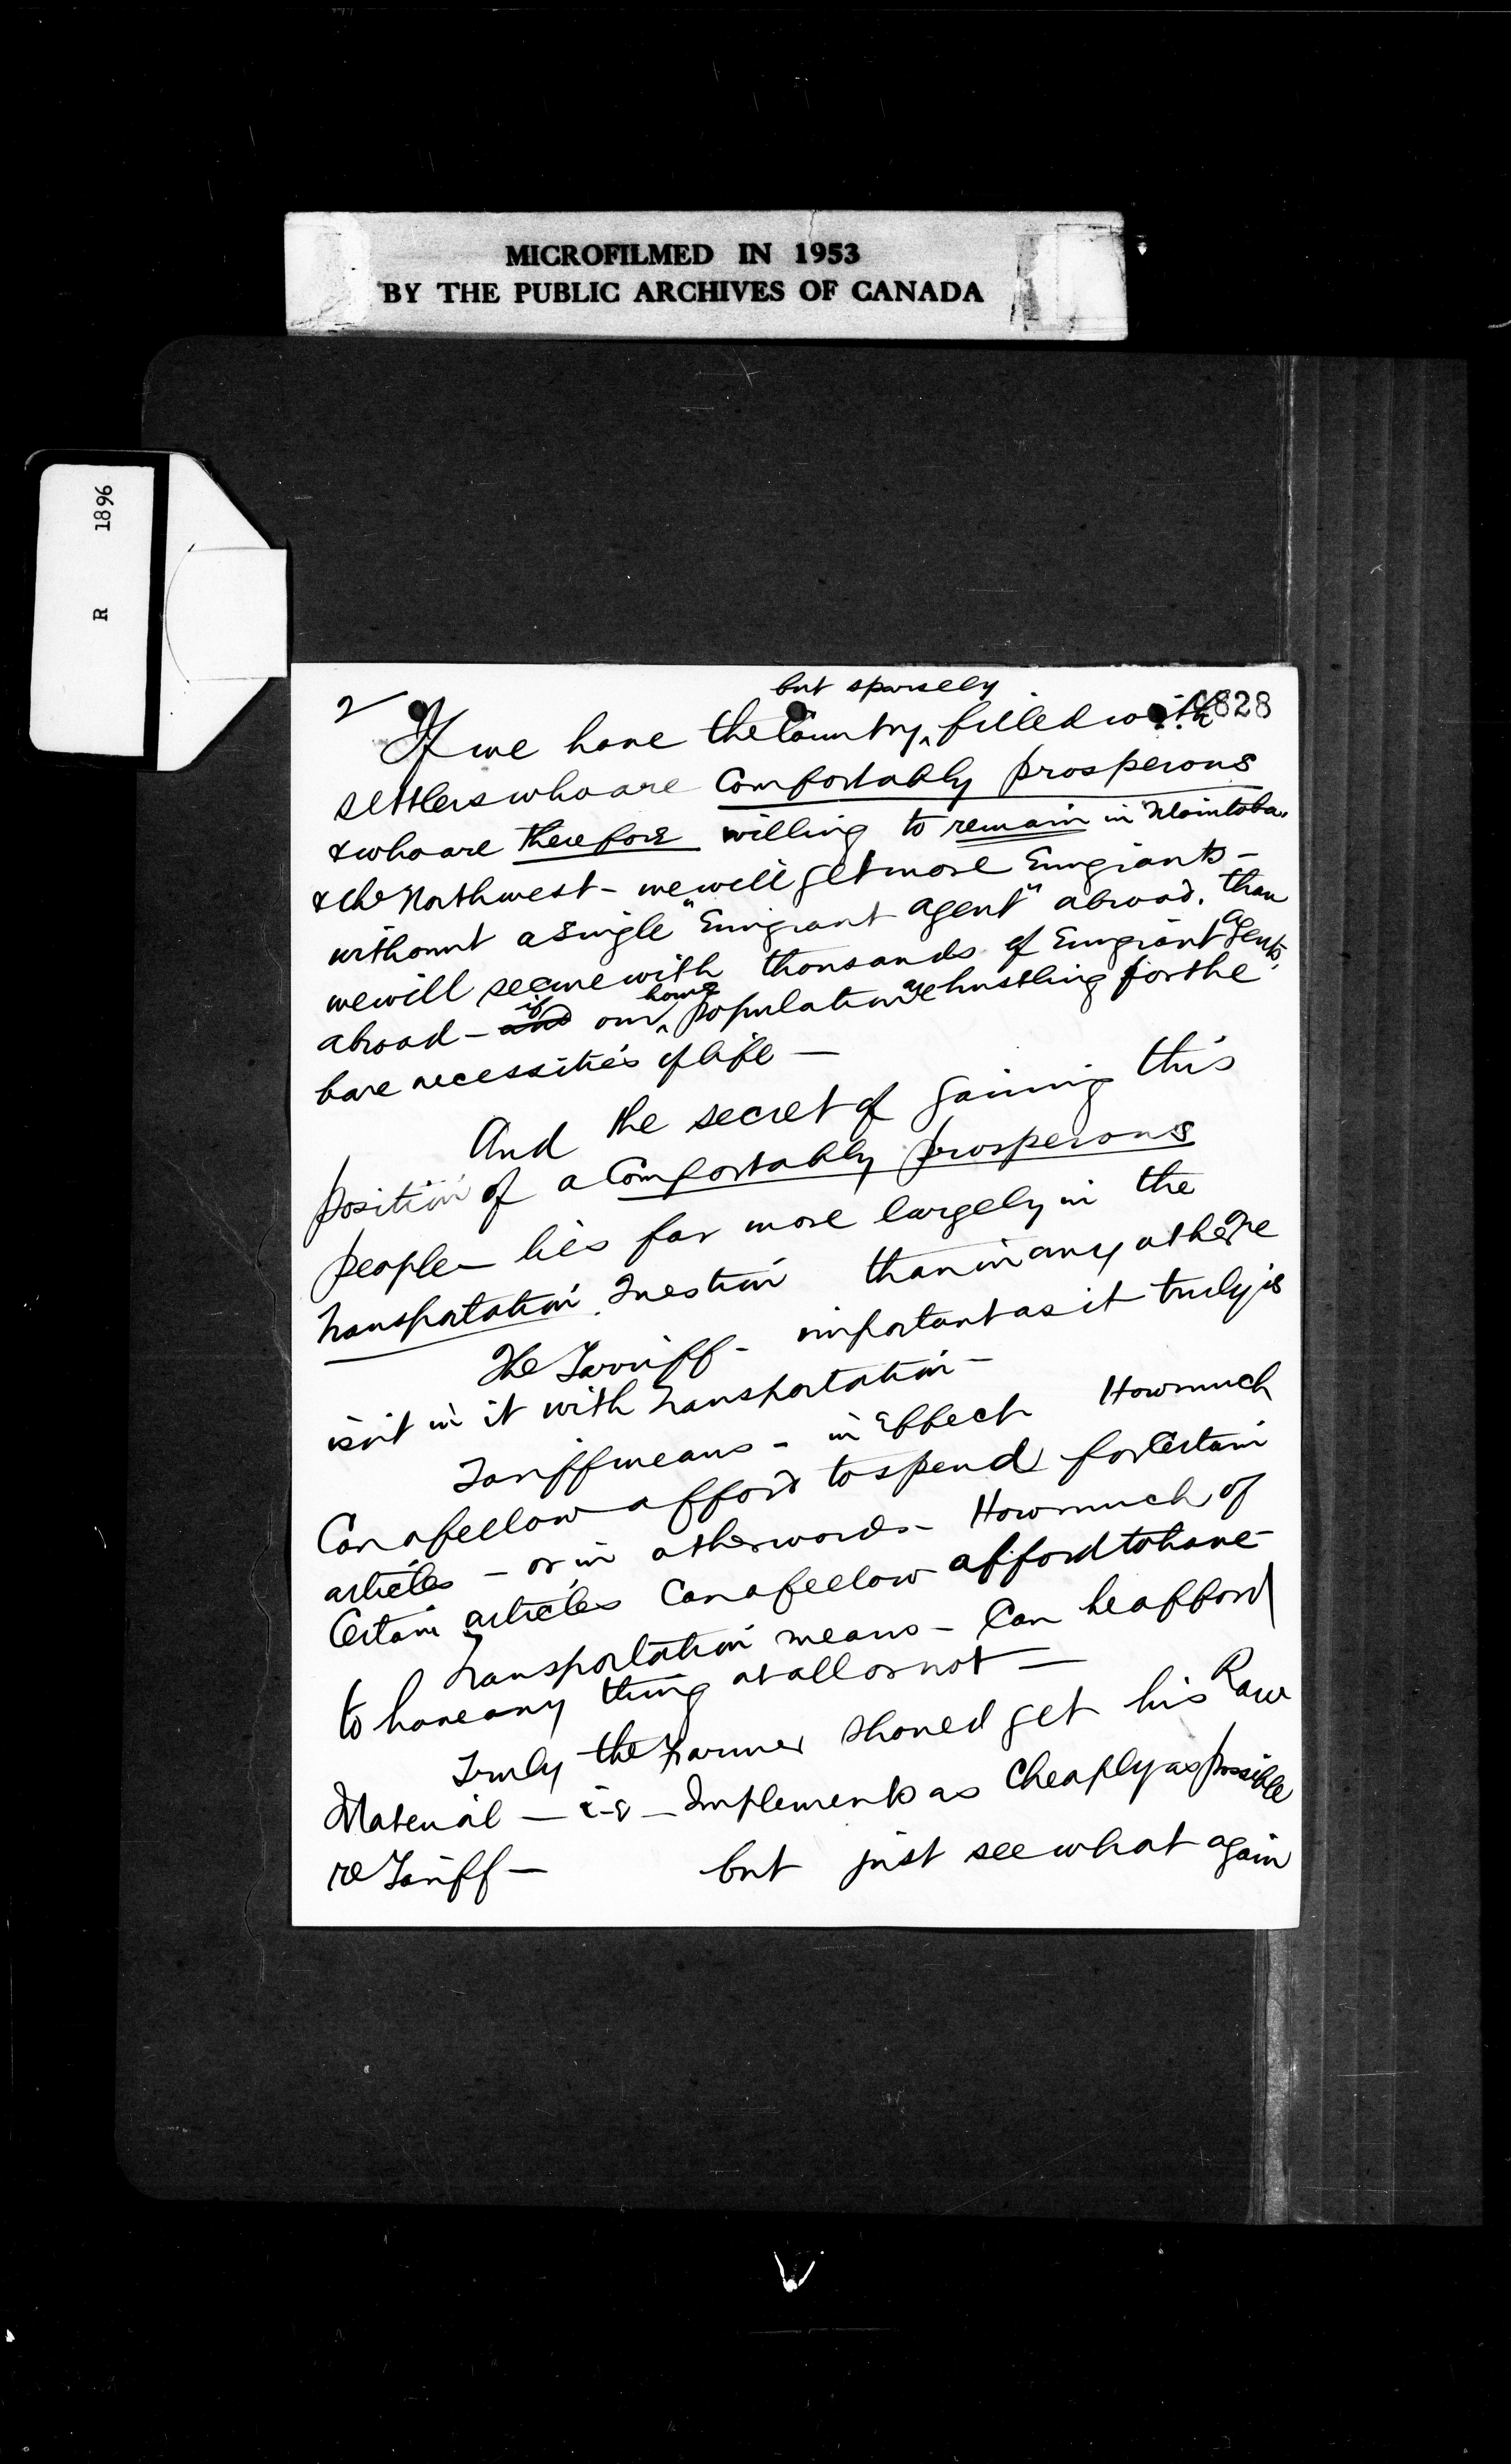 MICROFILMED IN 1953
BY THE PUBLIC ARCHIVES OF CANADA
R 1896
2
but sparsely
If we have the Country, ^ filled with 828
settlers who are Comfortably prosperous
& who are therefore willing to remain in Manitoba.
& the Northwest - we will get more Emigrants -
without a single "Emigrant agent" abroad. than
we will secure with thousands of Emigrant agents.
abroad - and if our ^ home population are hustling for the
bare necessities of life -
And the secret of gaining this
position of a Comfortably prosperous
people - lies far more largely in the
Transportation Question than in any other
The Tarriff - important as it truly is
isn't in it with Transportation -
Tariff means - in Effect How much
Can a fellow afford to spend for Certain
articles - or in other words - How much of
Certain articles Can a fellow afford to have -
Transportation means - Can he afford
to have any thing at all or not -
Truly the Farmer should get his Raw
Material - i-e - Implements as Cheaply as possible
re Tariff - but just see what again